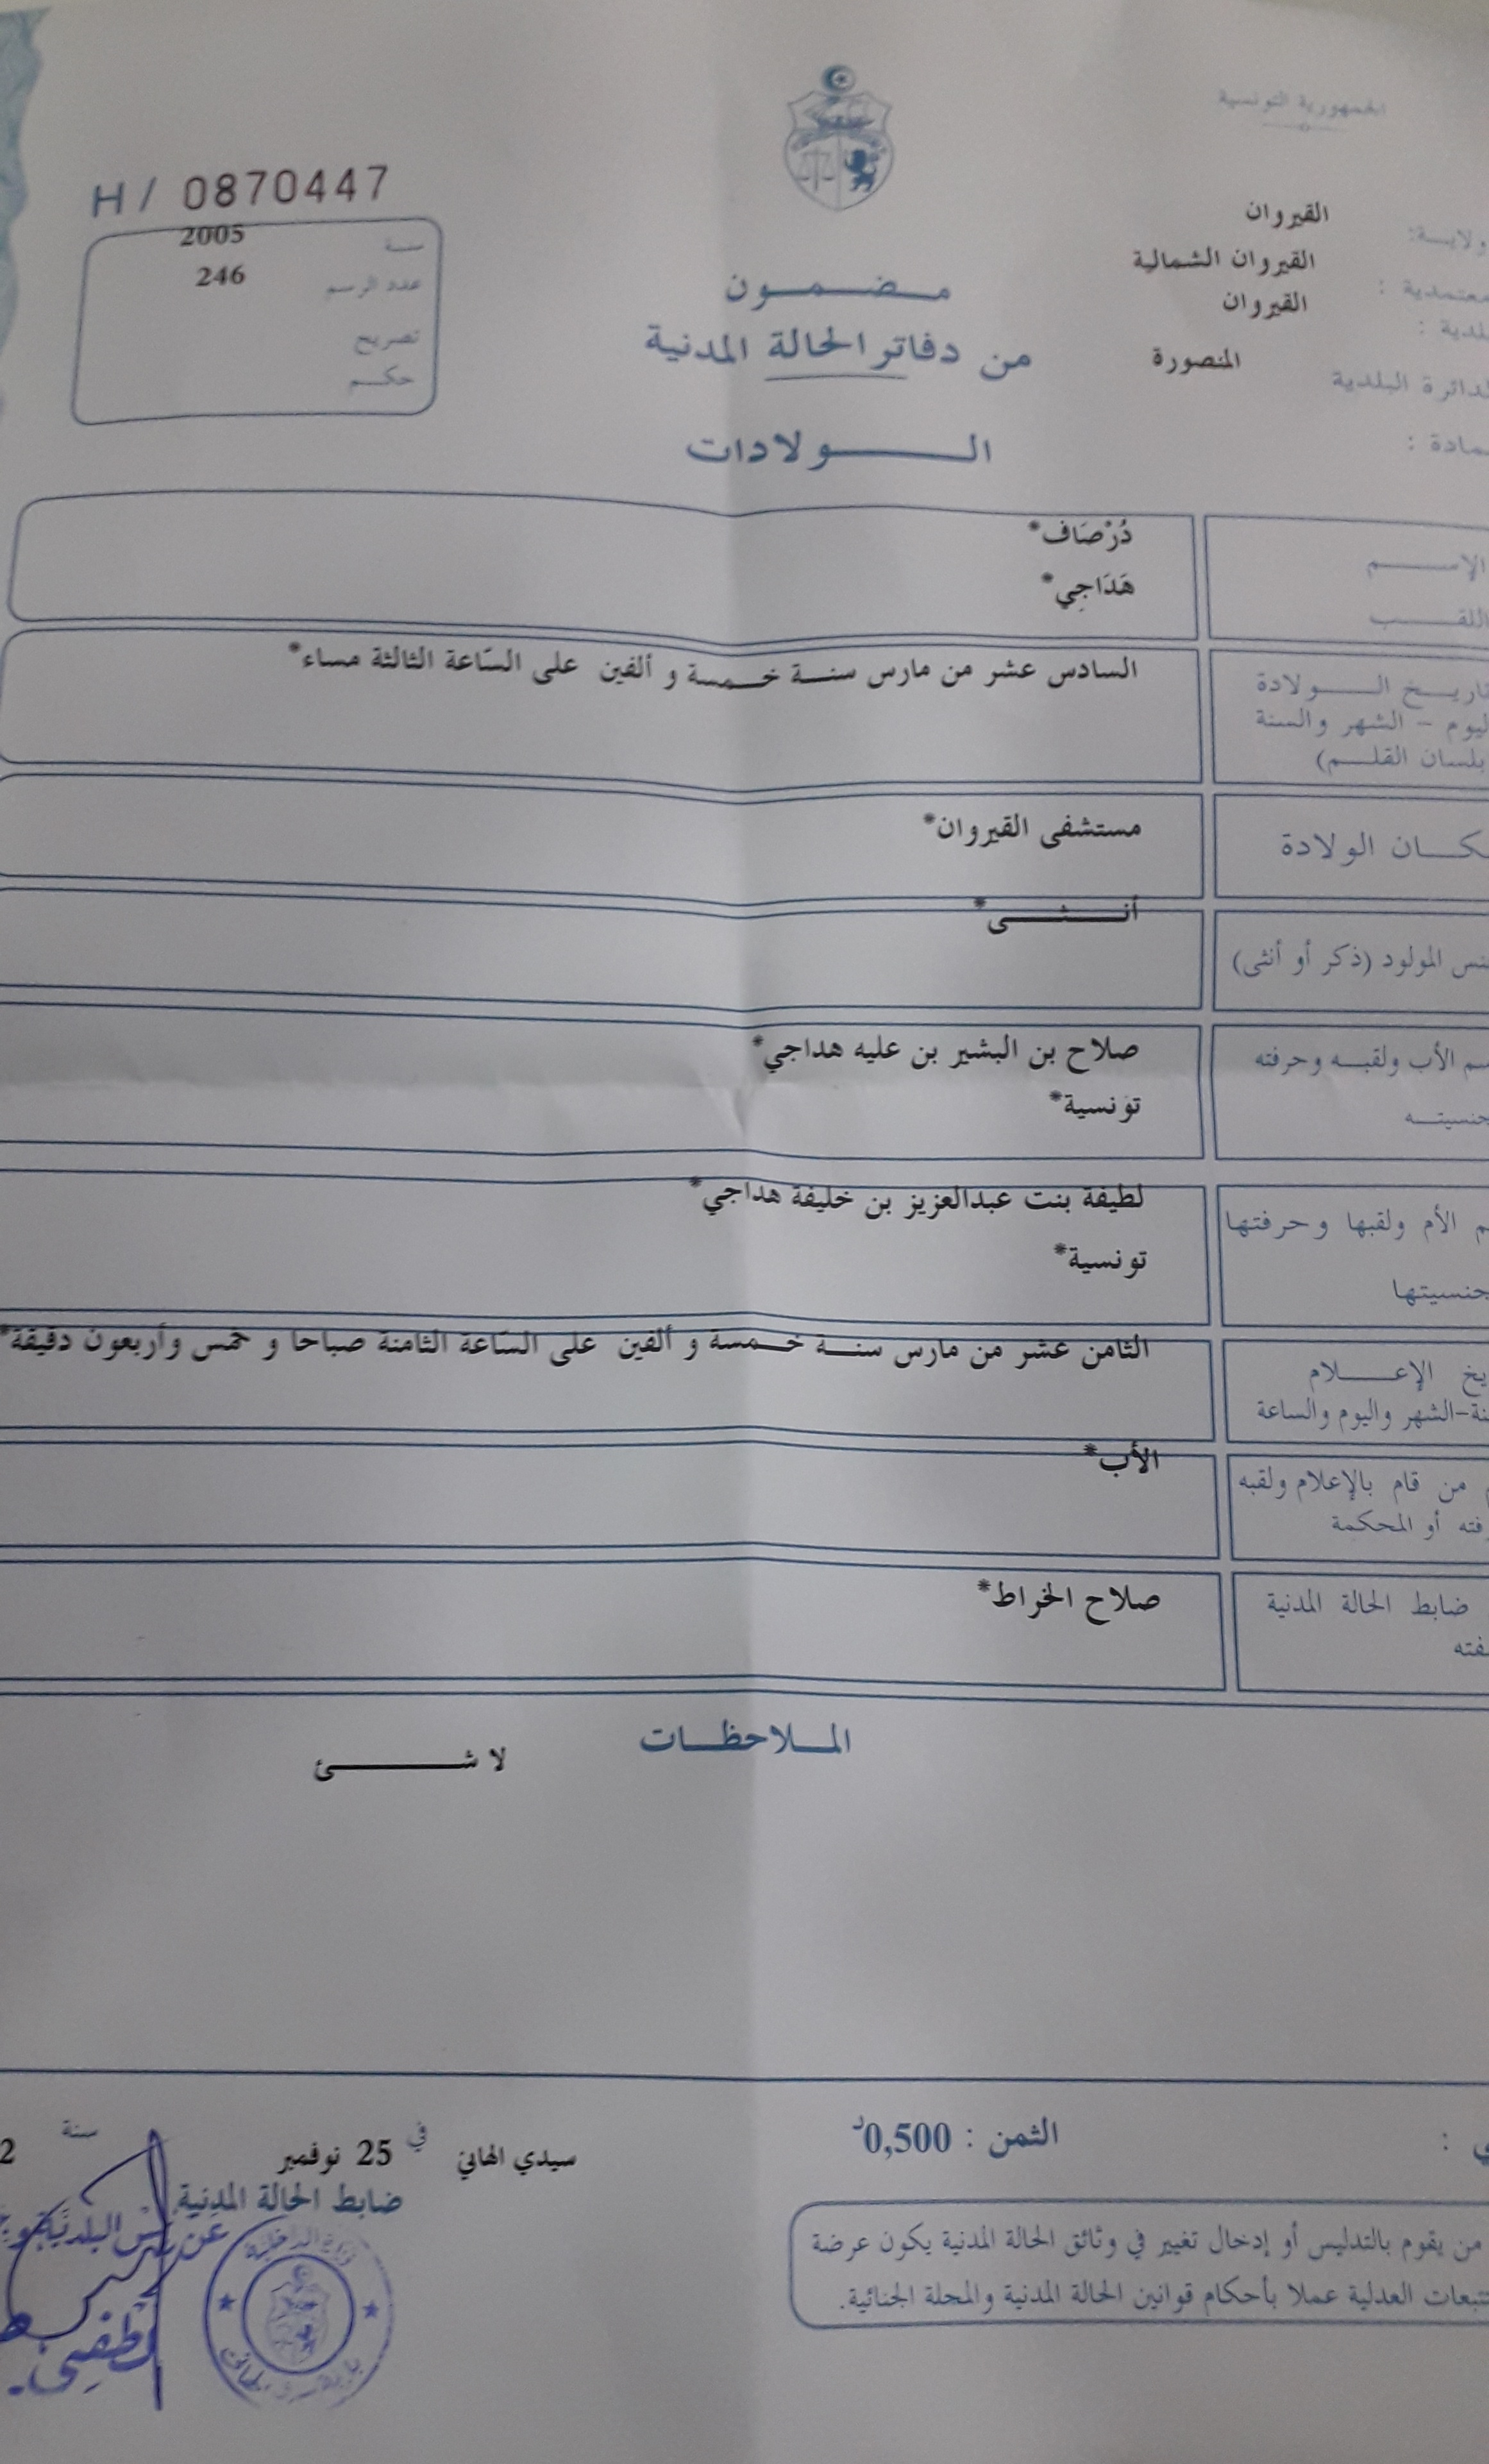 الجمهورية التونسية
H / 0870447
ولاية: القيروان
معتمدية : القيروان الشمالية
بلدية : القيروان
الدائرة البلدية المنصورة
عمادة :
سنة 2005
عدد الرسم 246
تصريح
حكم
مضمون
من دفاتر الحالة المدنية
الولادات
الإسم دُرْصَاف*
اللقب هَدَاجِي*
تاريخ الولادة السادس عشر من مارس سنة خمسة و ألفين على السّاعة الثالثة مساء*
اليوم - الشهر والسنة
بلسان القلم)
مكان الولادة مستشفى القيروان*
جنس المولود (ذكر أو أنثى) أنثى*
اسم الأب ولقبه وحرفته صلاح بن البشير بن عليه هداجي*
جنسيته تونسية*
اسم الأم ولقبها وحرفتها لطيفة بنت عبدالعزيز بن خليفة هداجي*
جنسيتها تونسية*
تاريخ الإعلام الثامن عشر من مارس سنة خمسة و ألفين على السّاعة الثامنة صباحا و خمس وأربعون دقيقة*
السنة-الشهر واليوم والساعة
من قام بالإعلام ولقبه الأب*
حرفته أو المحكمة
ضابط الحالة المدنية صلاح الخراط*
الملاحظات
لا شئ
الثمن : 0,500د
سيدي الهاني في 25 نوفمبر سنة 2
ضابط الحالة المدنية
من يقوم بالتدليس أو إدخال تغيير في وثائق الحالة المدنية يكون عرضة
للتتبعات العدلية عملا بأحكام قوانين الحالة المدنية والمجلة الجنائية.
وزارة الداخلية